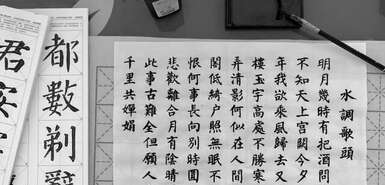 水調歌頭
明月幾時有把酒問
不知天上宮闕今夕
年我欲乘風歸去又
樓玉宇高處不勝寒
弄清影何似在人間
閣低綺戶照無眠不
恨何事長向別時圓
悲歡離合月有陰晴
此事古難全但願人
千里共嬋娟
都數剃
君